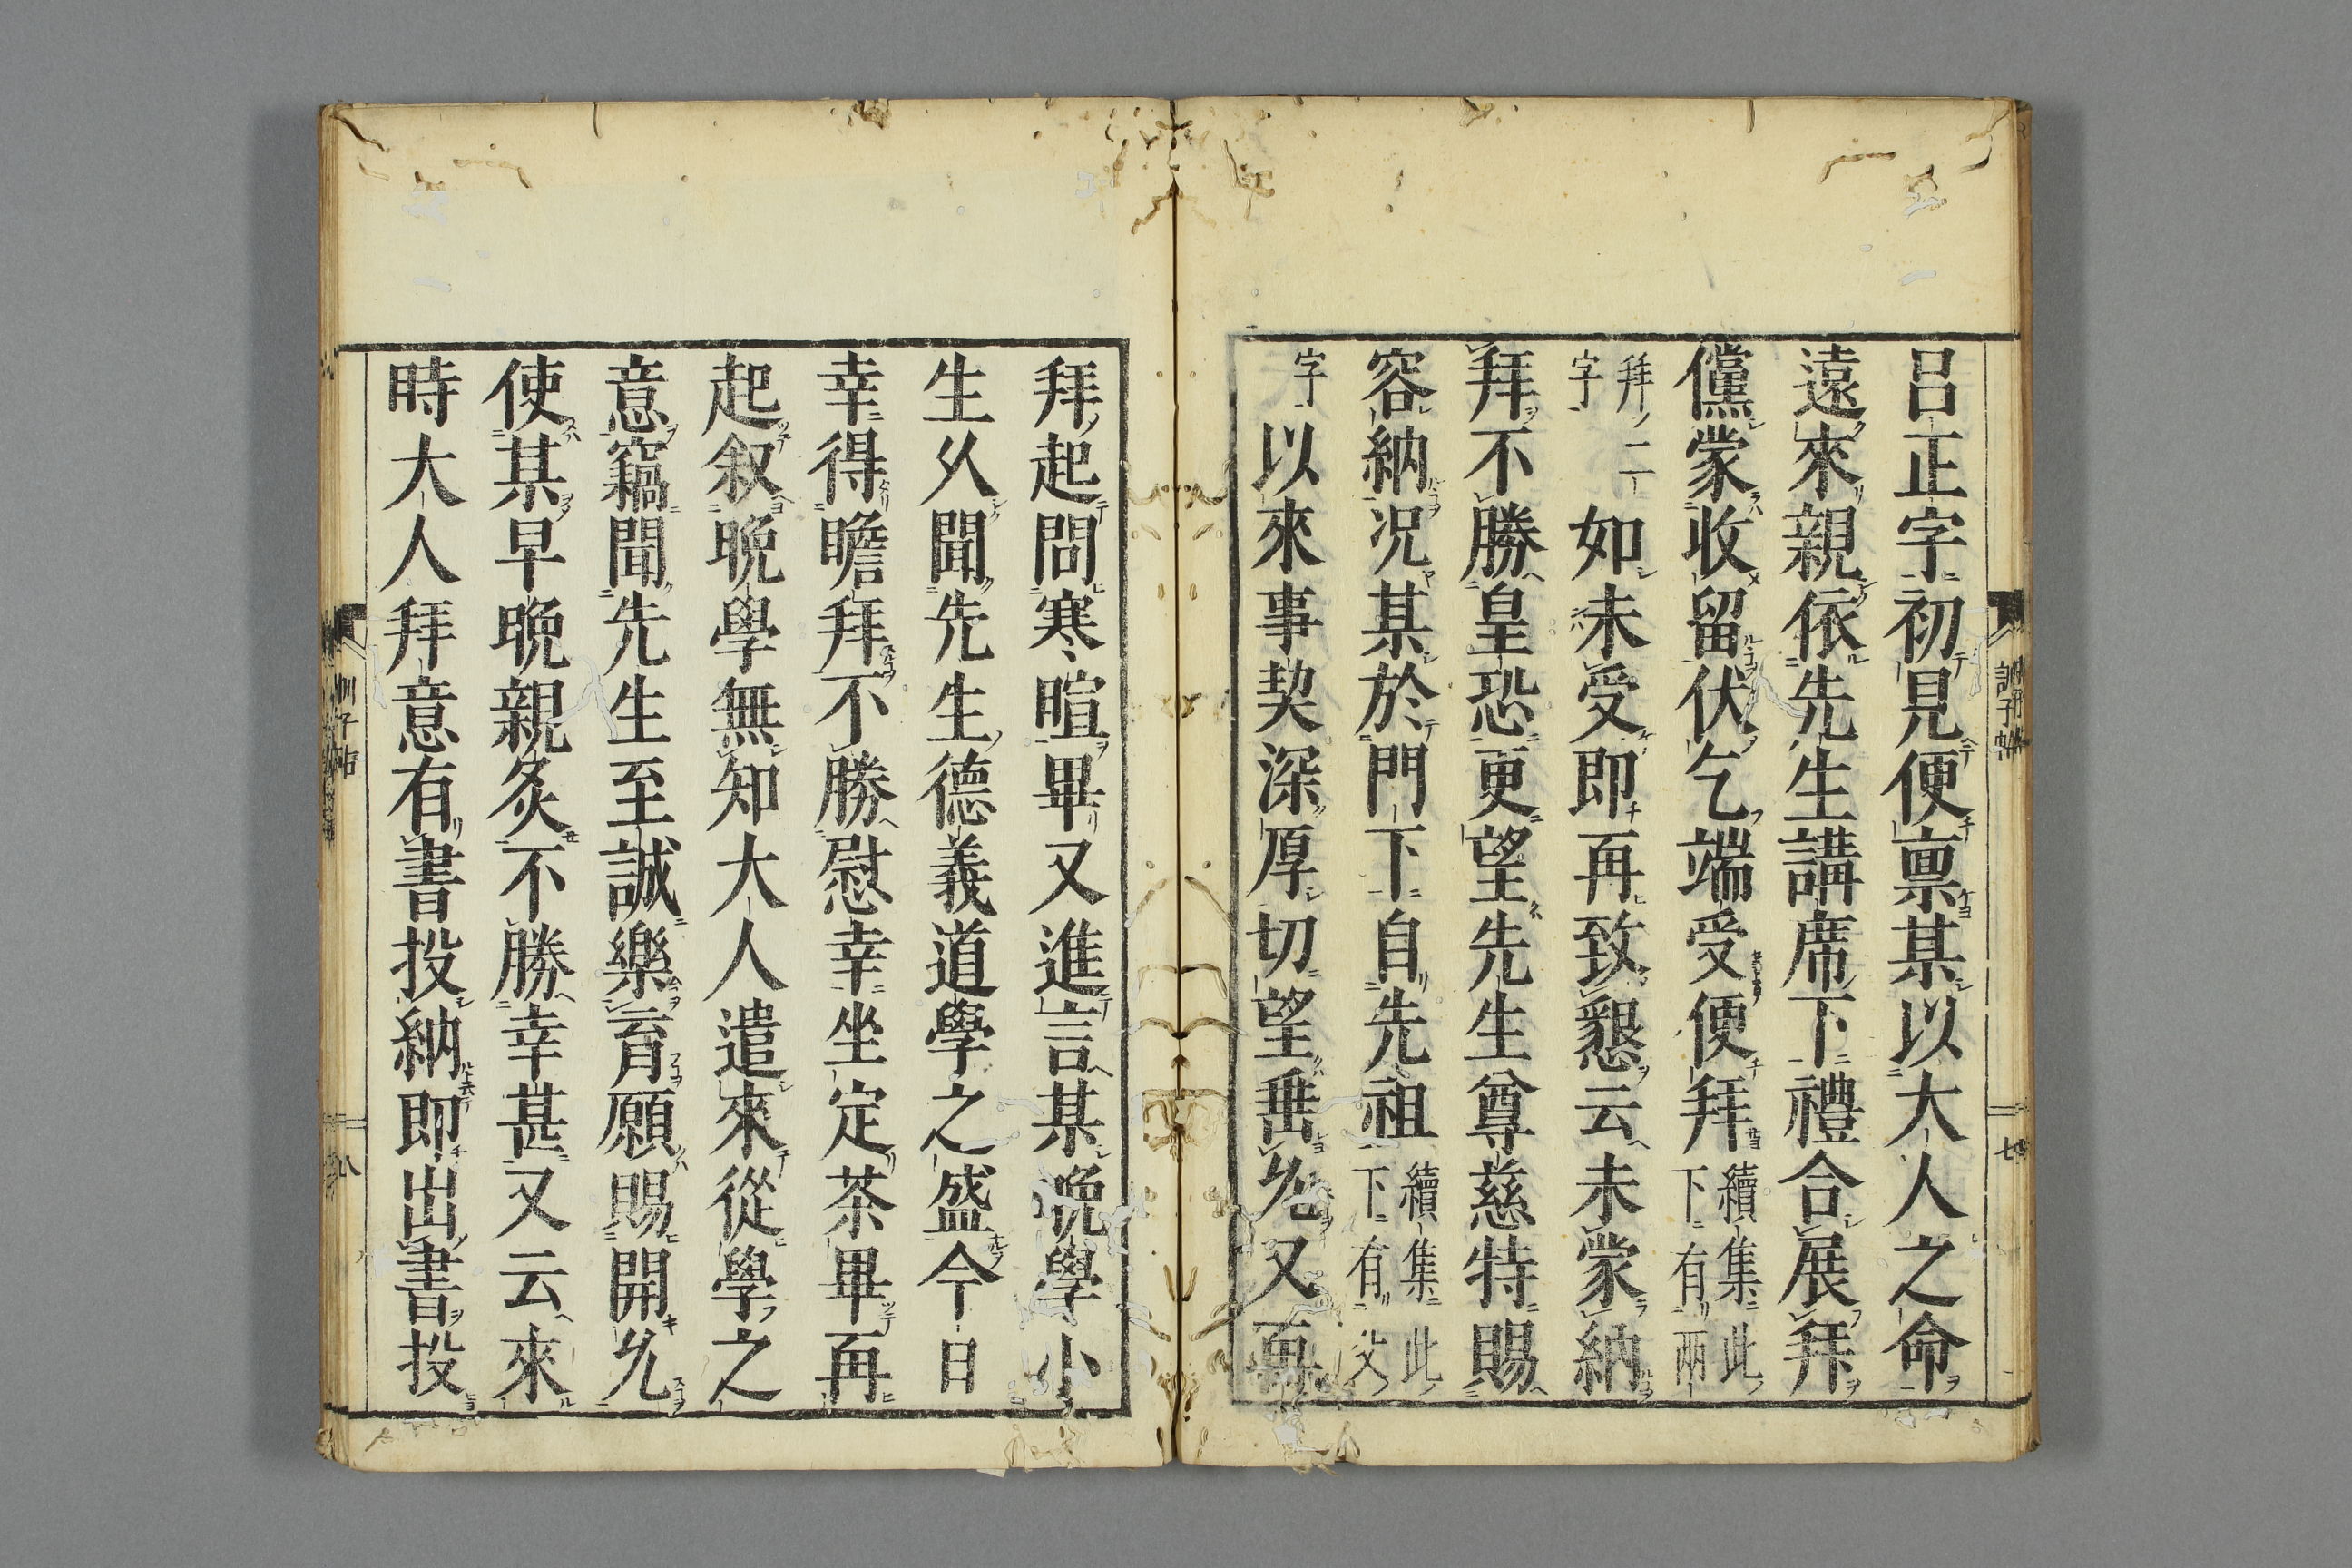 呂正字初見便禀某以大人之命
遠來親依先生講席下禮合展拜
儻蒙收留伏乞端受便拜續集此下有兩
拜二字如未受即再致懇云未蒙納
拜不勝皇恐更望先生尊慈特賜
容納况某於門下自先祖續集此下有父
字以來事契深厚切望垂允又再
拜起問寒暄畢又進言某晚學小
生久聞先生德義道學之盛今日
幸得瞻拜不勝慰幸坐定茶畢再
起叙晚學無知大人遣來從學之
意竊聞先生至誠樂育願賜開允
使某早晚親炙不勝幸甚又云來
時大人拜意有書投納即出書投
訓子帖
七
訓子帖
八